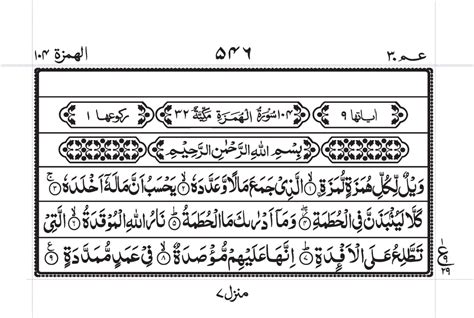 عم ٣٠ ٥٤٦ الهمزة ١٠٤
اٰیاتها ٩ ١٠٤ سُوْرَةُ الْهُمَزَةِ مَكِّیَّةٌ ٣٢ رکوعها ١
بِسْمِ اللّٰهِ الرَّحْمٰنِ الرَّحِیْمِ
وَیْلٌ لِّكُلِّ هُمَزَةٍ لُّمَزَةِ ۙ﴿١﴾ الَّذِیْ جَمَعَ مَالًا وَّعَدَّدَهٗ ۙ﴿٢﴾ یَحْسَبُ اَنَّ مَالَهٗۤ اَخْلَدَهٗ ۚ﴿٣﴾
كَلَّا لَیُنْۢبَذَنَّ فِی الْحُطَمَةِ ﴿٤﴾ وَمَاۤ اَدْرٰىكَ مَا الْحُطَمَةُ ﴿٥﴾ نَارُ اللّٰهِ الْمُوْقَدَةُ ۙ﴿٦﴾ الَّتِیْ
تَطَّلِعُ عَلَی الْاَفْـِٕدَةِ ﴿٧﴾ اِنَّهَا عَلَیْهِمْ مُّؤْصَدَةٌ ۙ﴿٨﴾ فِیْ عَمَدٍ مُّمَدَّدَةٍ ﴿٩﴾
ع
١
٩
٢٩
منزل ٧